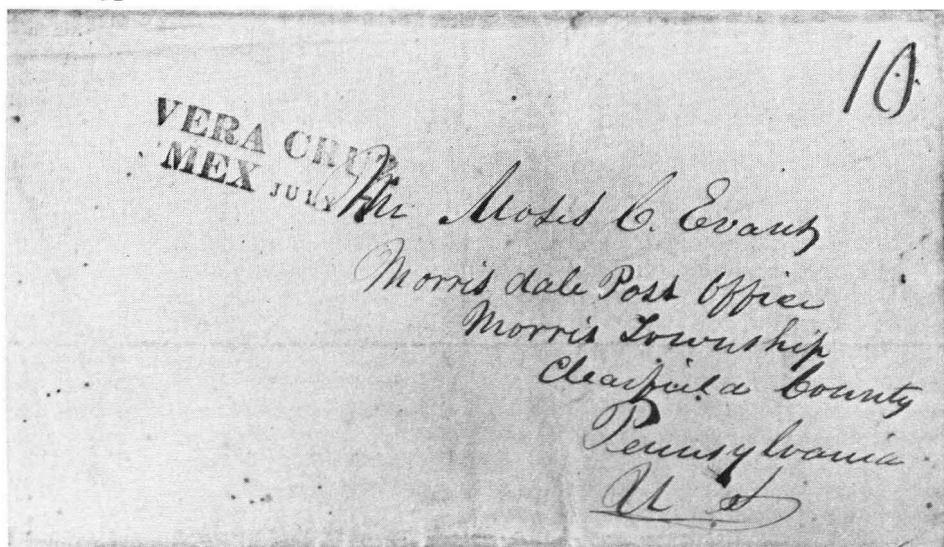 10
VERA CRUZ
MEX JULY
Mr Moses C. Evans
Morrisdale Post Office
Morris Township
Clearfield County
Pennsylvania
U S